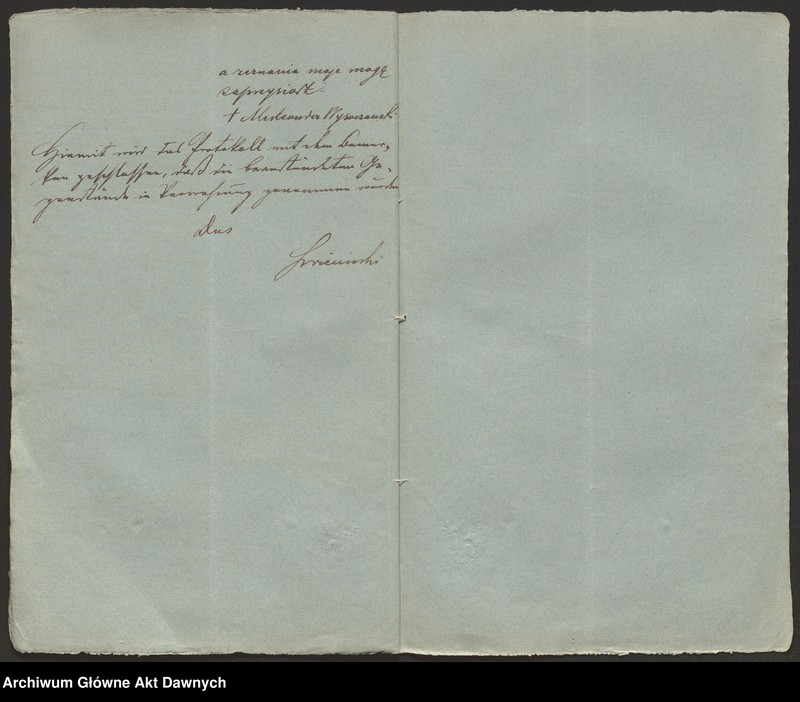 a zeznania moje mogę
zaprzysiądz
† Aleksander Wysoczanski
Hiemit wird das Protokoll mit dem Bemer-
ken geschlossen, daß die beanständeten Ge-
genstände in Verwahrung genommen wurden
Dus
Archiwum Główne Akt Dawnych